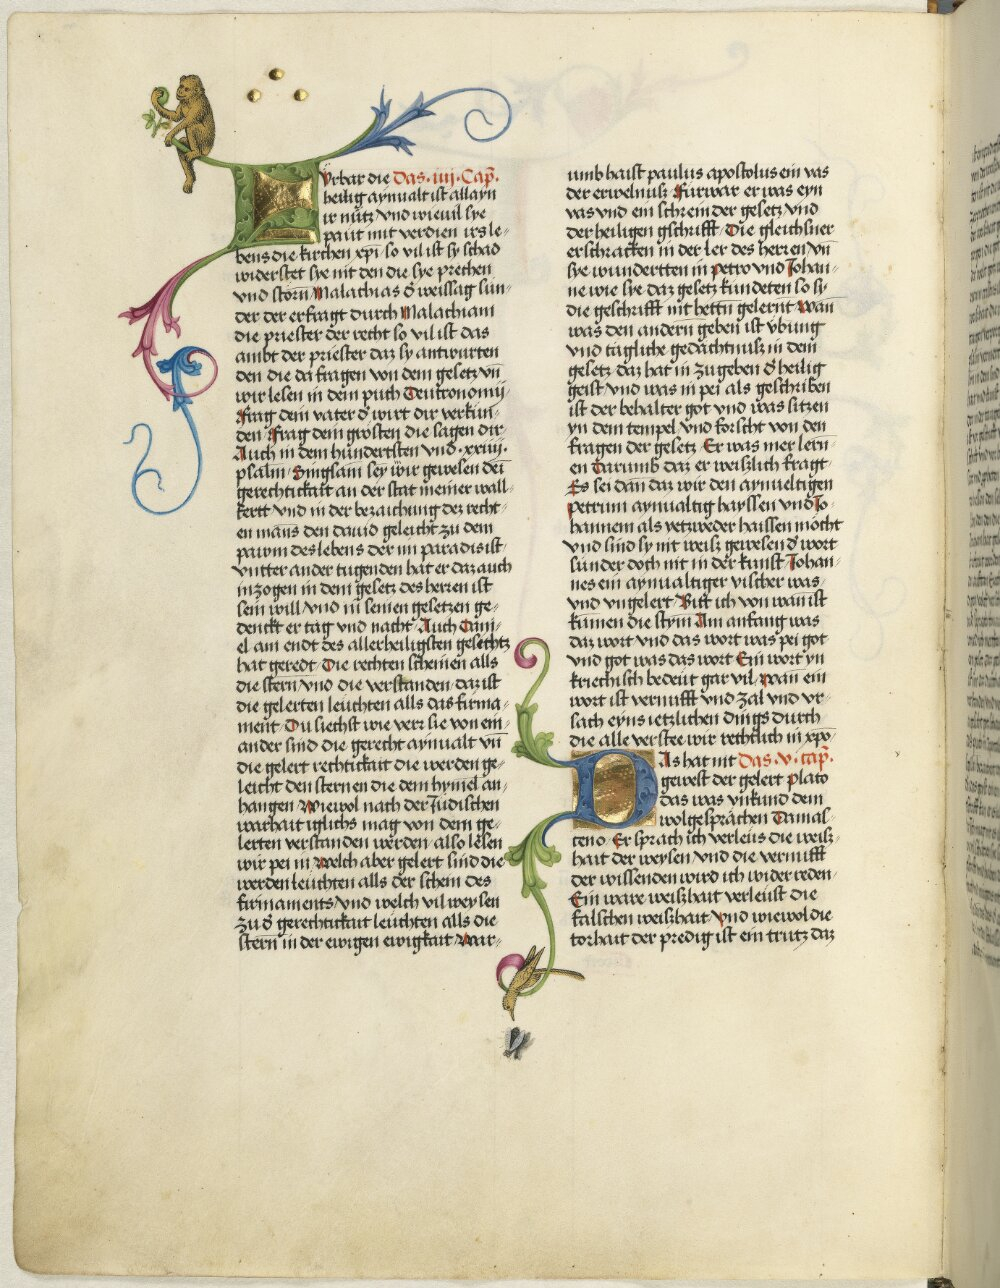 Vrbar die Das .iiij. Cap̃.
heilig aynualt ist allayn
ir nůtz vnd wieuil sye
paut mit verdien irs le-
bens die kirchen xp̃i so vil ist sy schad
widerstet sye nit den die sye prechen
vnd störn Malachias d̕ weissag sun-
der der erfragt durch Malachiam
die priester der recht so vil ist das
ambt der priester daz sy antwurten
den die da fragen von dem gesetz vn̄
wir lesen in dem puch Deutronomij
Frag dein vater d̕ wirt dir verkün-
den Frag dein grosten die sagen dir
Auch in dem hundertsten vnd .xviij.
psalm Singsam sey wir gewesen dei
gerechtickait an der stat meiner wall-
fertt vnd in der bezaichung dez recht-
en mans den dauid geleicht zu dem
pawm des lebens der im paradis ist
vntter ander tugenden hat er daz auch
inzogen in dem gesetz des herren ist
sein will vnd in seinen gesetzen ge-
denckt er tag vnd nacht Auch Dani-
el am endt des allerheiligsten gesechtz
hat geredt Die rechten scheinen alls
die stern vnd die verstanden daz ist
die gelerten leuchten alls das firma-
ment Du siechst wie verr sie von ein-
ander sind die gerecht aynualt vn̄
die gelert rechtickait die werden ge-
leicht den sternen die dem hymel an-
hangen Wiewol nach der Judischen
warhait iglichs mag von dem ge-
lerten verstanden werden also lesen
wir pei in Welch aber gelert sind die
werden leuchten alls der schein des
firmaments vnd welch vil weysen
zu d̕ gerechtickait leuchten alls die
stern in der ewigen ewigkait War-
umb haist paulus apostolus ein vas
der erwelnusz Furwar er was eyn
vas vnd ein schrein der gesetz vnd
der heiligen gschrifft Die gleichsner
erschracken in der ler des herren vn̄
sye wundertten in petro vnd Johan-
ne wie sye daz gesetz kundeten so sy
die geschrifft nit hettn̄ gelernt Wan
was den andern geben ist vbung
vnd tägliche gedachtnusz in dem
gesetz daz hat in zugeben d̕ heilig
geist vnd was in pei als geschriben
ist der behalter got vnd was sitzen
yn dem tempel vnd forscht von den
fragen der gesetz Er was mer lern-
en Darumb daz er weiszlich fragt
Es sei dan daz wir den aynueltigen
Petrum aynualtig hayssen vnd Jo-
hannem als yetzweder haissen möcht
vnd sind sy nit weisz gewesen d̕ wort
sunder doch nit in der kunst Johan-
nes ein aynualtiger vischer was
vnd vngelert Bitt ich von wan ist
kumen die stym Am anfang was
daz wort vnd das wort was pei got
vnd got was das wort Ein wort yn
kriechisch bedeut gar vil Wan ein
wort ist vernufft vnd zal vnd vr-
sach eyns ietzlichen dings durch
die alle verstee wir rechtlich in xp̃o
DAs hat nit Das .v. cap̃.
gewest der gelert plato
das was vnkund dem
wolgesprächen Damas-
ceno Er sprach ich verleus die weisz-
hait der weysen vnd die vernufft
der wissenden wird ich wider reden
Ein ware weiszhait verleust die
falschen weiszhait Vnd wiewol die
torhait der predig ist ein trutz daz